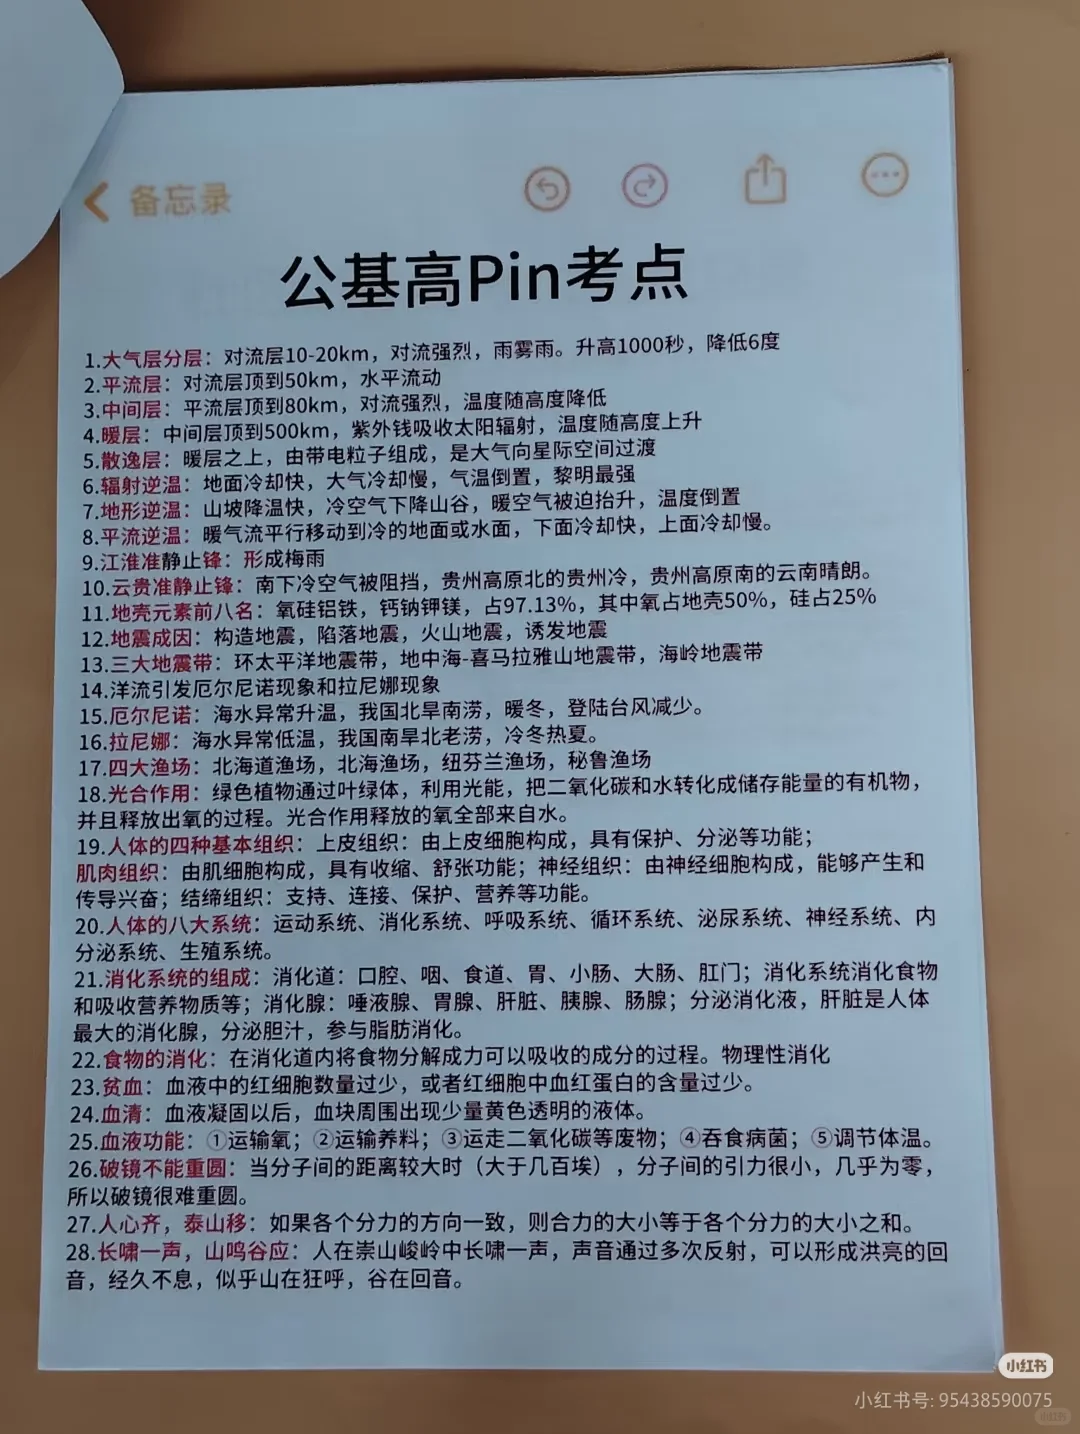 备忘录
公基高Pin考点
1.大气层分层：对流层10-20km，对流强烈，雨雾雨。升高1000秒，降低6度
2.平流层：对流层顶到50km，水平流动
3.中间层：平流层顶到80km，对流强烈，温度随高度降低
4.暖层：中间层顶到500km，紫外钱吸收太阳辐射，温度随高度上升
5.散逸层：暖层之上，由带电粒子组成，是大气向星际空间过渡
6.辐射逆温：地面冷却快，大气冷却慢，气温倒置，黎明最强
7.地形逆温：山坡降温快，冷空气下降山谷，暖空气被迫抬升，温度倒置
8.平流逆温：暖气流平行移动到冷的地面或水面，下面冷却快，上面冷却慢。
9.江淮准静止锋：形成梅雨
10.云贵准静止锋：南下冷空气被阻挡，贵州高原北的贵州冷，贵州高原南的云南晴朗。
11.地壳元素前八名：氧硅铝铁，钙钠钾镁，占97.13%，其中氧占地壳50%，硅占25%
12.地震成因：构造地震，陷落地震，火山地震，诱发地震
13.三大地震带：环太平洋地震带，地中海-喜马拉雅山地震带，海岭地震带
14.洋流引发厄尔尼诺现象和拉尼娜现象
15.厄尔尼诺：海水异常升温，我国北旱南涝，暖冬，登陆台风减少。
16.拉尼娜：海水异常低温，我国南旱北老涝，冷冬热夏。
17.四大渔场：北海道渔场，北海渔场，纽芬兰渔场，秘鲁渔场
18.光合作用：绿色植物通过叶绿体，利用光能，把二氧化碳和水转化成储存能量的有机物，
并且释放出氧的过程。光合作用释放的氧全部来自水。
19.人体的四种基本组织：上皮组织：由上皮细胞构成，具有保护、分泌等功能；
肌肉组织：由肌细胞构成，具有收缩、舒张功能；神经组织：由神经细胞构成，能够产生和
传导兴奋；结缔组织：支持、连接、保护、营养等功能。
20.人体的八大系统：运动系统、消化系统、呼吸系统、循环系统、泌尿系统、神经系统、内
分泌系统、生殖系统。
21.消化系统的组成：消化道：口腔、咽、食道、胃、小肠、大肠、肛门；消化系统消化食物
和吸收营养物质等；消化腺：唾液腺、胃腺、肝脏、胰腺、肠腺；分泌消化液，肝脏是人体
最大的消化腺，分泌胆汁，参与脂肪消化。
22.食物的消化：在消化道内将食物分解成力可以吸收的成分的过程。物理性消化
23.贫血：血液中的红细胞数量过少，或者红细胞中血红蛋白的含量过少。
24.血清：血液凝固以后，血块周围出现少量黄色透明的液体。
25.血液功能：①运输氧；②运输养料；③运走二氧化碳等废物；④吞食病菌；⑤调节体温。
26.破镜不能重圆：当分子间的距离较大时（大于几百埃），分子间的引力很小，几乎为零，
所以破镜很难重圆。
27.人心齐，泰山移：如果各个分力的方向一致，则合力的大小等于各个分力的大小之和。
28.长啸一声，山鸣谷应：人在崇山峻岭中长啸一声，声音通过多次反射，可以形成洪亮的回
音，经久不息，似乎山在狂呼，谷在回音。
小红书
小红书号: 95438590075
小红书